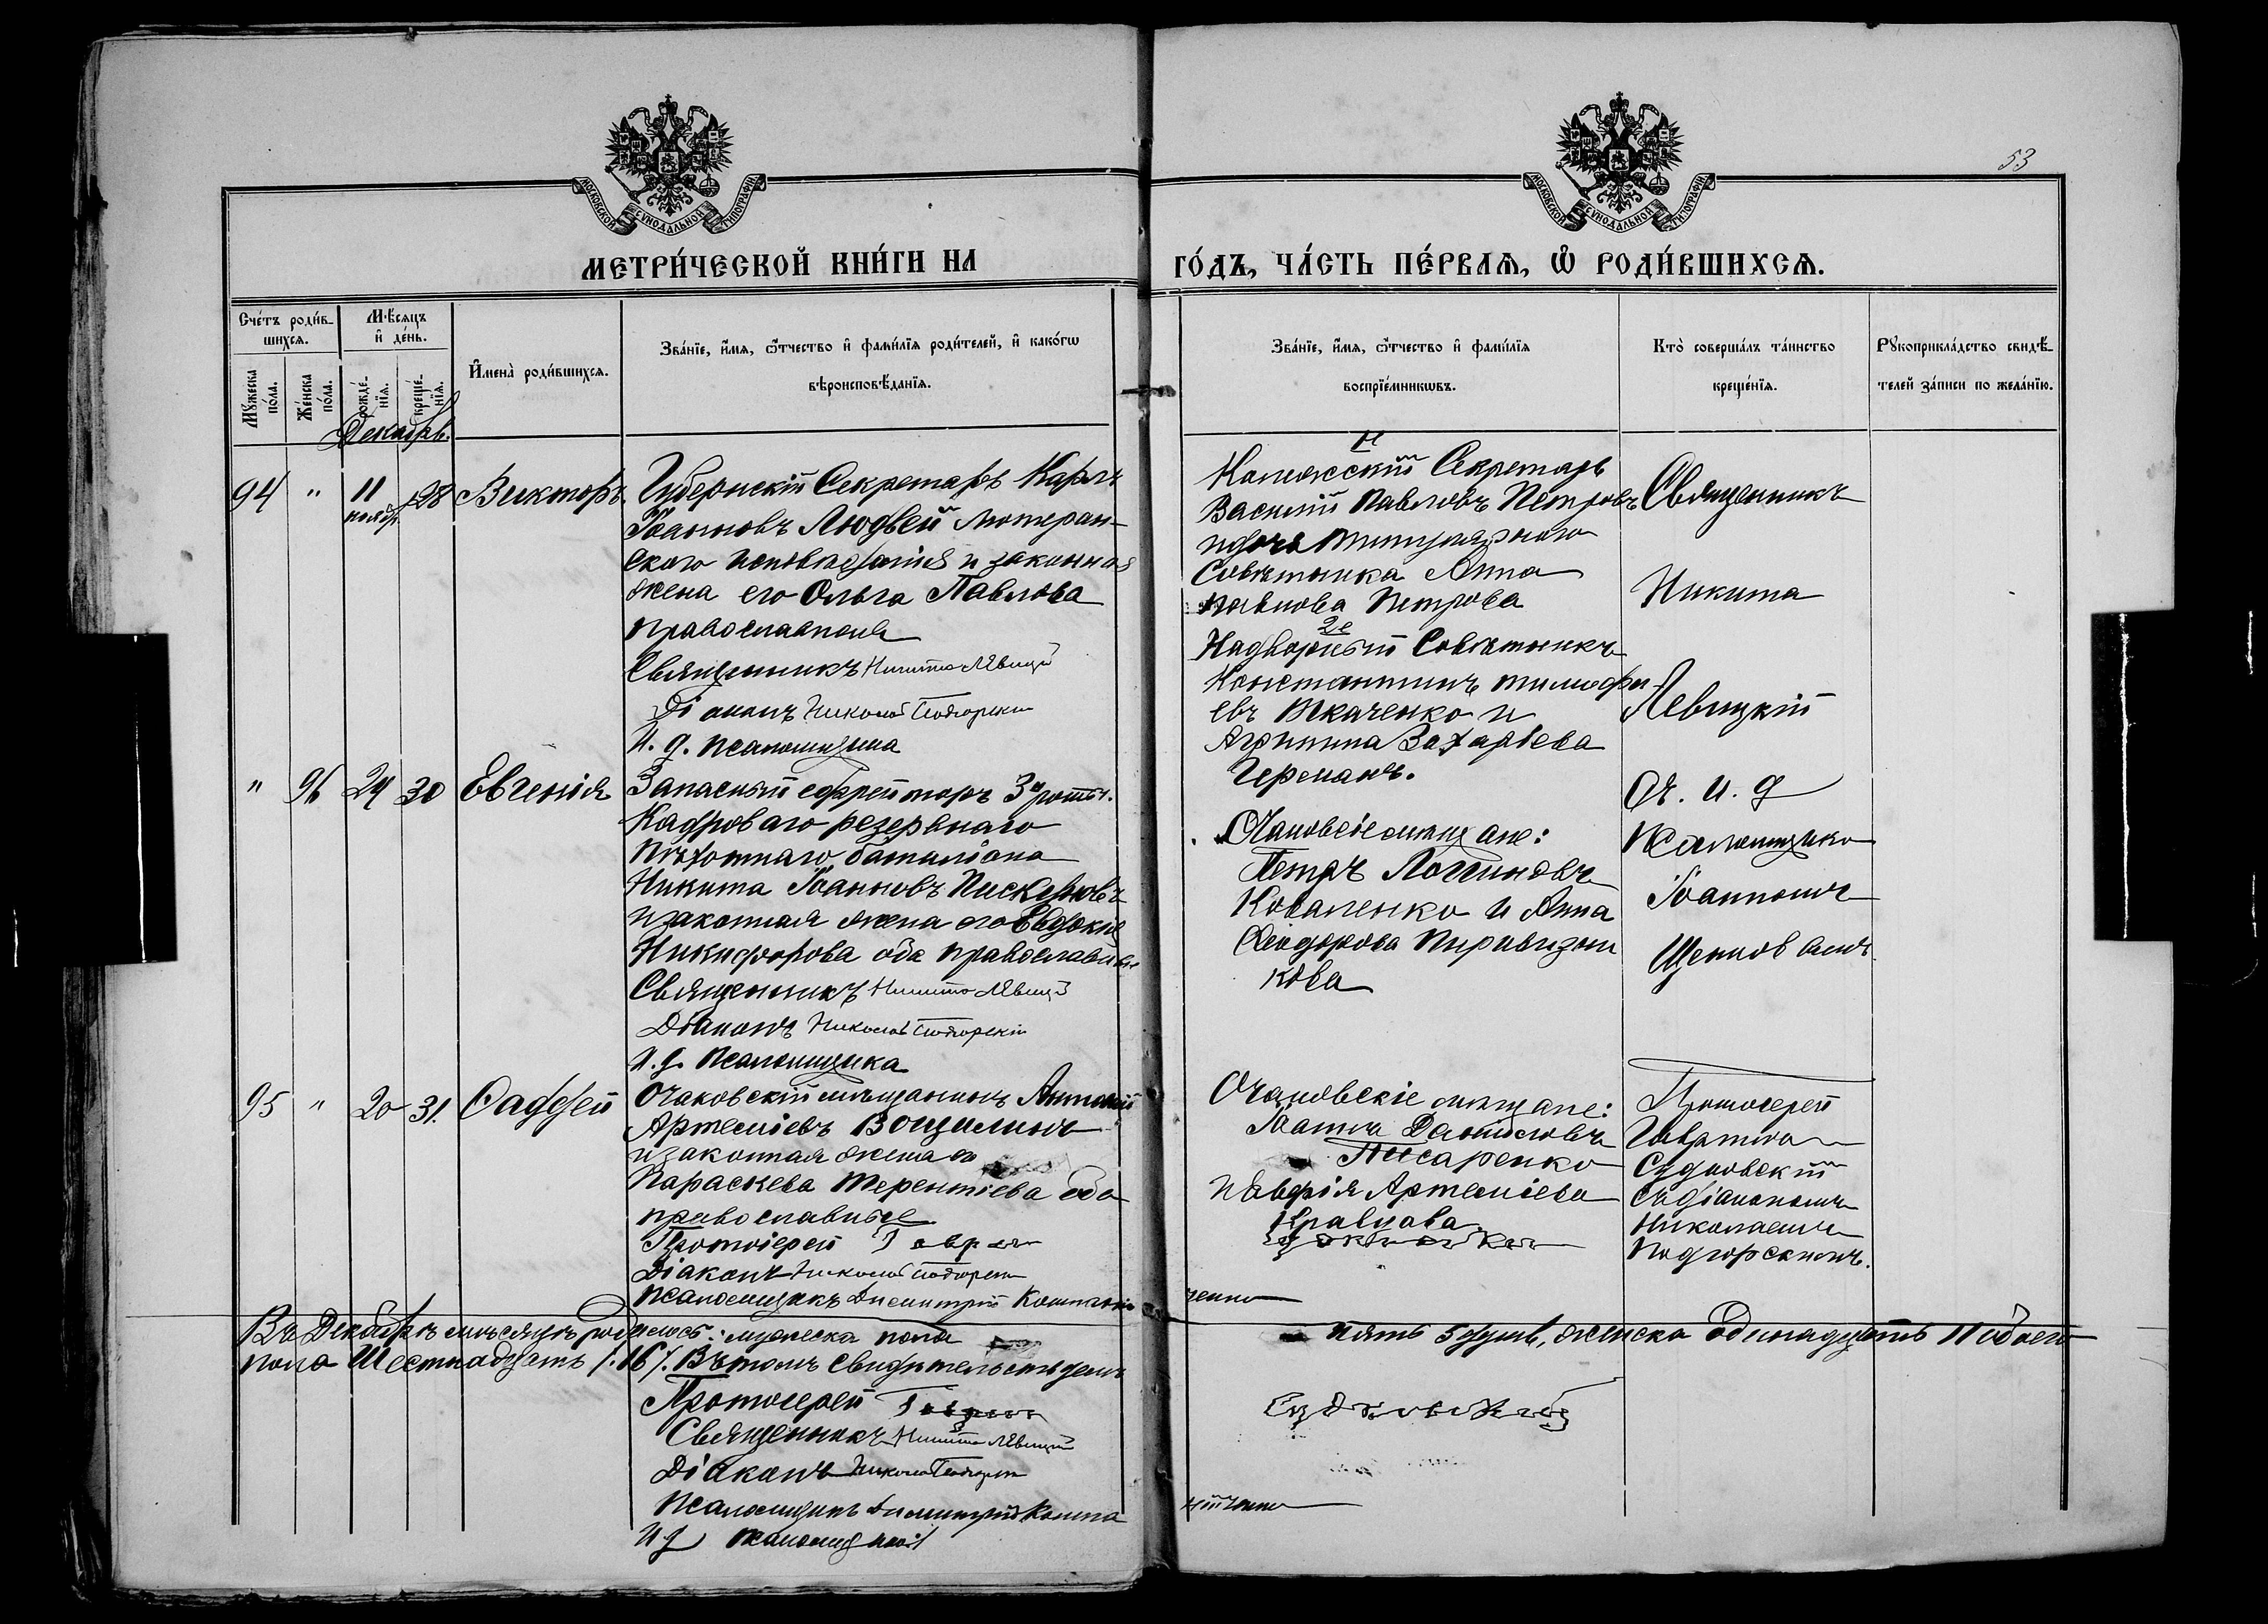 53
МОСКОВСКОЙ СѴНОДАЛЬНОЙ ТИПОГРАФІИ
МОСКОВСКОЙ СѴНОДАЛЬНОЙ ТИПОГРАФІИ
МЕТРИ́ЧЕСКОЙ КНИ́ГИ НА
ГО́ДЪ, ЧА́СТЬ ПЕ́РВАѦ, Ѡ РОДИ́ВШИХСѦ.
Сче́тъ роди́в-
шихсѧ.
Мѣ́сѧцъ
и҆ де́нь.
Мꙋ́жеска
по́ла.
Же́нска
по́ла.
рожде́-
нїѧ.
креще́-
нїѧ.
И҆мена̀ роди́вшихсѧ.
Зва́нїе, и҆́мѧ, ѻ҆́тчество и҆ фамі́лїѧ роди́телей, и҆ како́гѡ
вѣроисповѣ́данїѧ.
Зва́нїе, и҆́мѧ, ѻ҆́тчество и҆ фамі́лїѧ
воспрїе́мникѡвъ.
Кто̀ соверша́лъ та́инство
креще́нїѧ.
Рꙋкоприкла́дство свидѣ́-
телей за́писи по жела́нїю.
Декабрь.
94 " 11 ноябр. 28 Викторъ
Губернскій Секретарь Карлъ
Іоанновъ Людвей лютеран-
скаго исповѣданія и законная
жена его Ольга Павлова
православная
Священникъ Никита Левицкій
Діаконъ Николай Подгорскій
И. д. псаломщика
Секретарь
Василій Павловъ Петровъ
и дочь титулярнаго
Совѣтника Анна
Павлова Петрова
2е
Надворный Совѣтникъ
Константинъ
евъ Ткаченко и
Агрипина Захаріева
Германъ.
Священникъ
Никита
Левицкій
съ и. д
псаломщика
Іоанномъ
" 96 29 30 Евгенія
Запасный ефрейторъ 3й роты
Кадроваго резервнаго
пѣхотнаго баталіона
Никита Іоанновъ
и законная жена его Евдокія
Никифорова оба православные
Священникъ Никита Левицкій
Діаконъ Николай Подгорскій
И. д. псаломщика
Очаковскіе мѣщане:
Петръ Логиновъ
Коваленко и Анна
Ѳеодорова
кова
95 " 20 31. Ѳаддей
Очаковскій мѣщанинъ Антоній
Артеміевъ Вощилинъ
и законная жена его
Параскева Терентіева оба
православные
Протоіерей Гавріилъ
Діаконъ Николай Подгорскій
Псаломщикъ Димитрій
Очаковскіе мѣщане:
Іоаннъ Даниловъ
Писаренко
Артеміева
Кравцова
Судковскій
Протоіерей
Гавріилъ
Судковскій
съ діакономъ
Николаемъ
Подгорскимъ.
Въ Декабрѣ мѣсяцѣ родилось: мужеска пола
пять 5 душъ, женска одинадцать 11 обоего
пола Шестнадцать /.16/. Въ томъ свидѣтельствуемъ
Протоіерей Гавріилъ
Судковскій
Священникъ Никита Левицкій
Діаконъ Николай Подгорскій
Псаломщикъ Димитрій
И д псаломщика